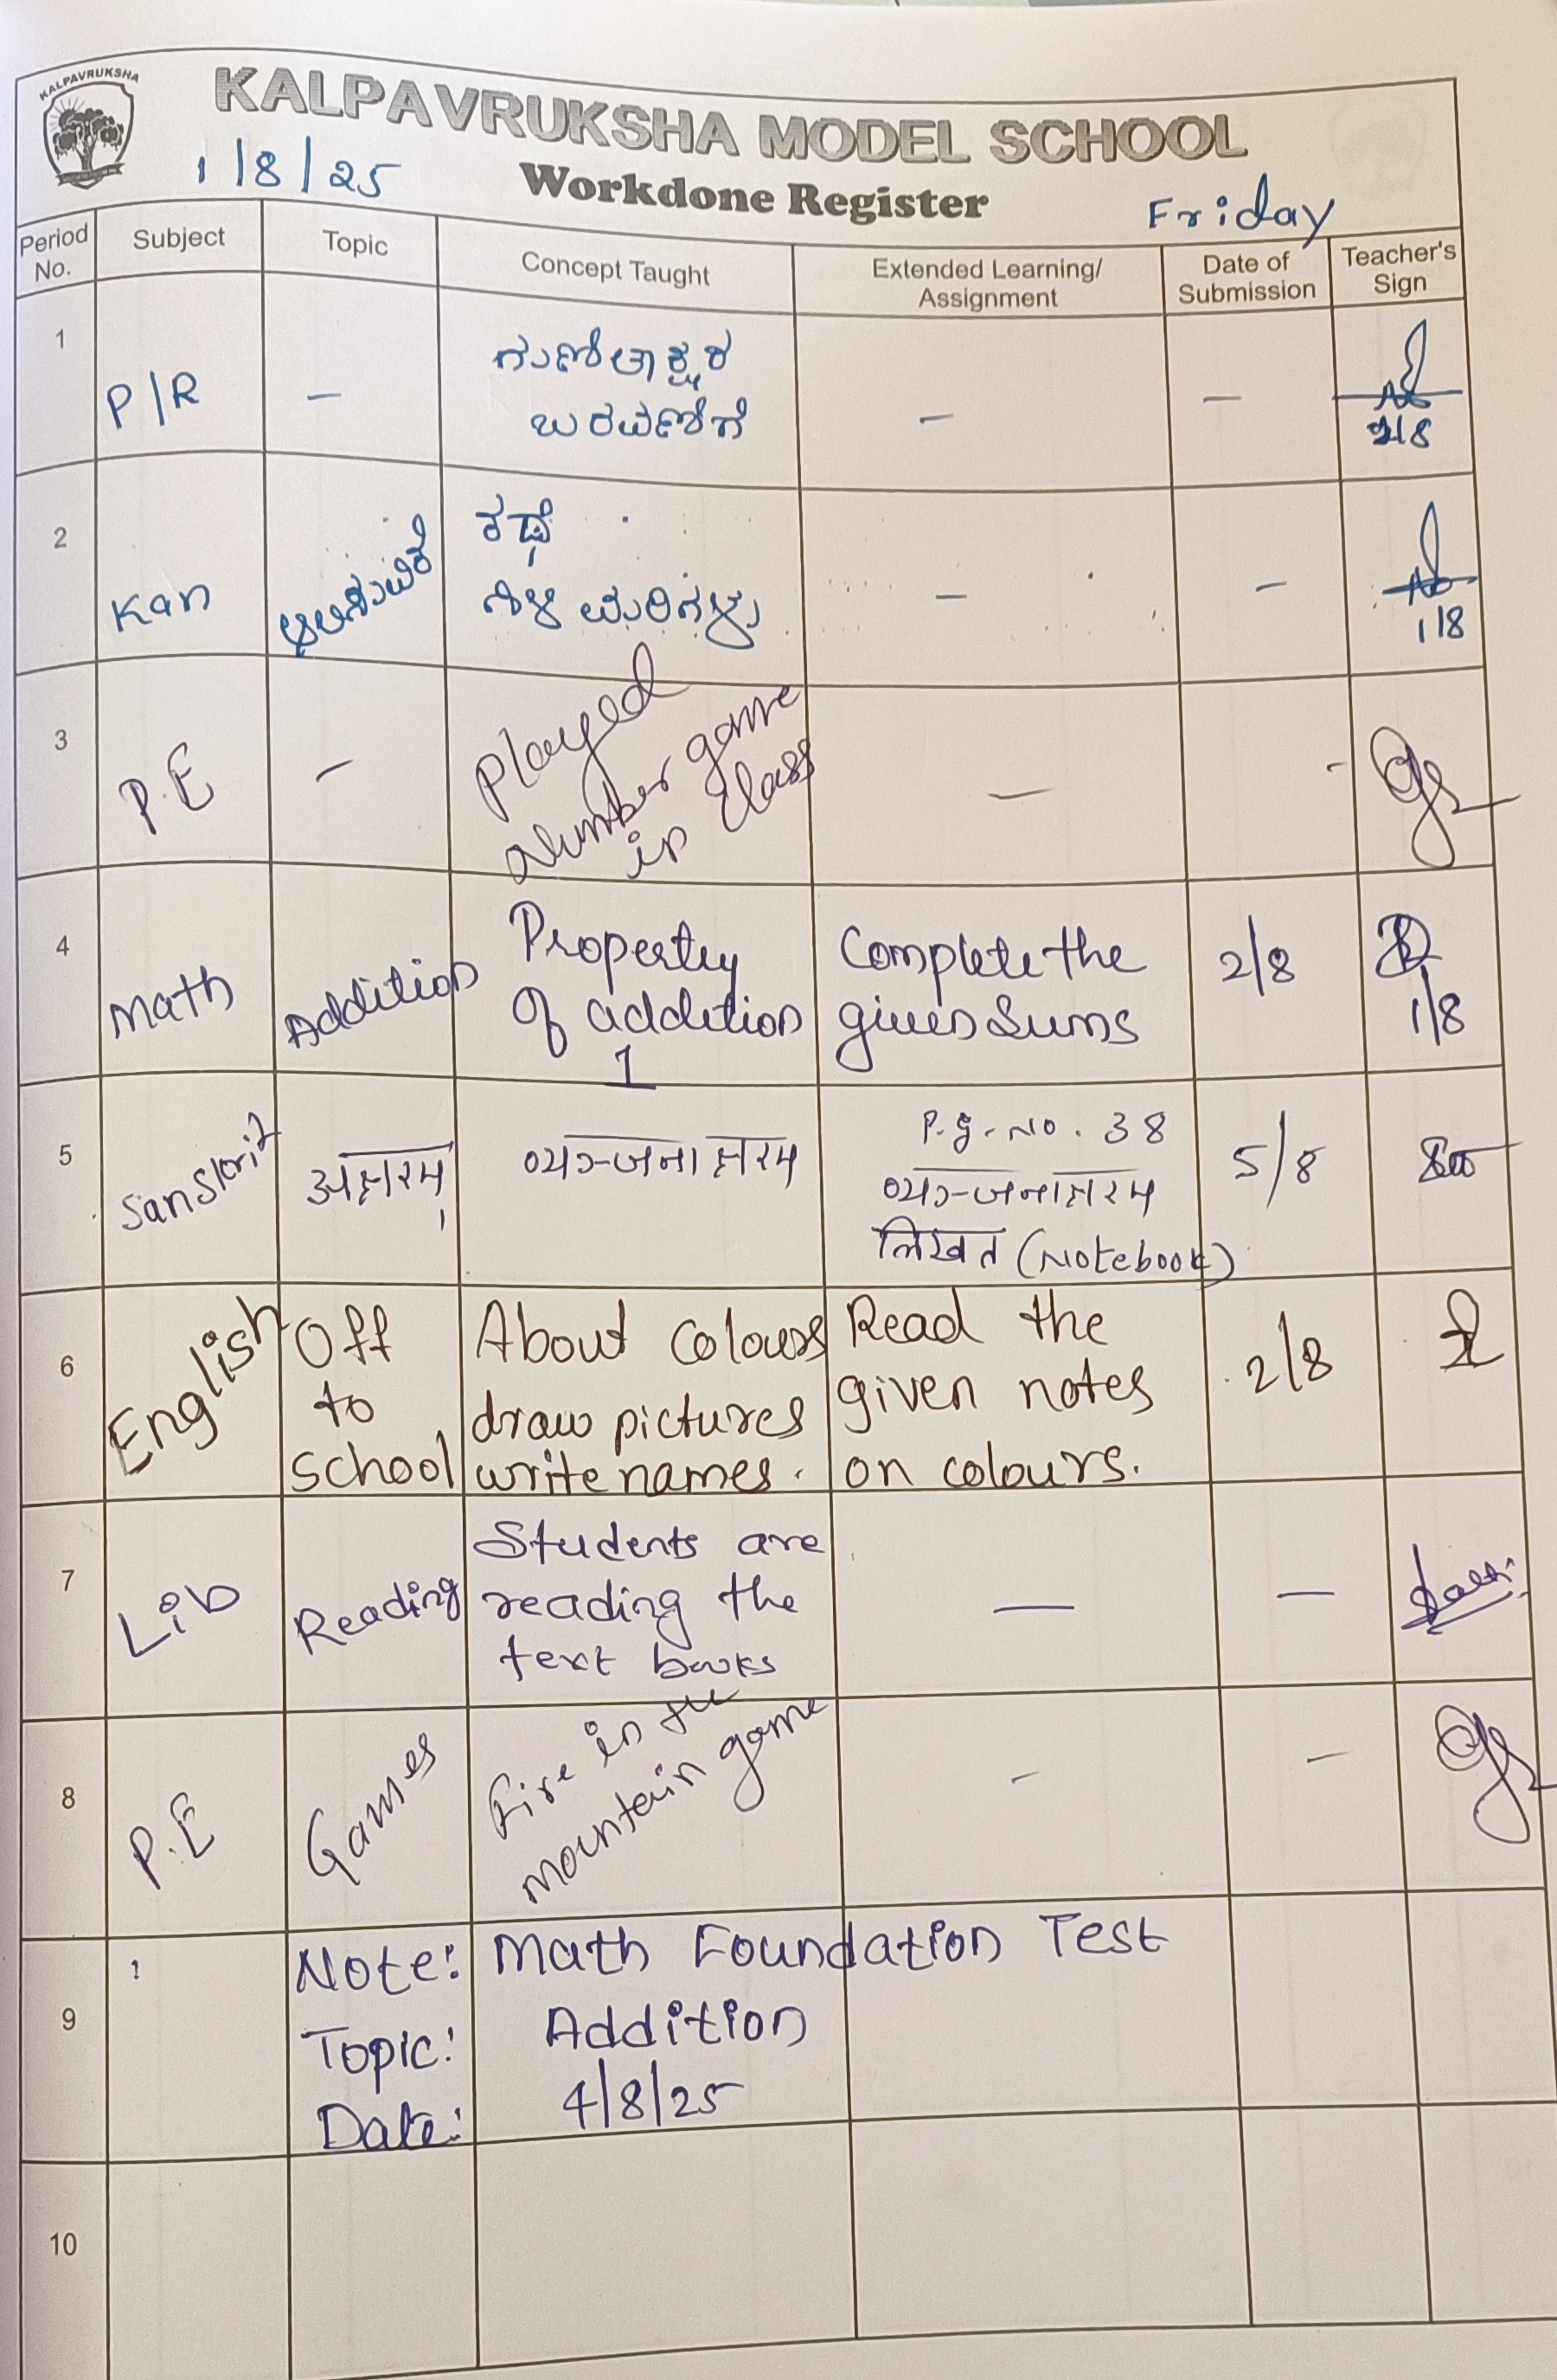 KALPAVRUKSHA
KALPAVRUKSHA MODEL SCHOOL
1/8/25
Workdone Register
Friday
Period No. Subject Topic Concept Taught Extended Learning/ Assignment Date of Submission Teacher's Sign
1 P/R - ಗುಣಿತಾಕ್ಷರ
ಬರವಣಿಗೆ - -
2 Kan ಕಥೆ
ಗಿಳಿ ಮರಿಗಳು - -
1/8
3 P.E - Played
Number game
in class - -
4 Math Addition Property
Of addition
1
Complete the
given Sums
2/8
1/8
5 Sanskrit अक्षरम् व्यञ्जनाक्षरम्
P.g. No. 38
व्यञ्जनाक्षरम्
लिखत (Notebook)
5/8
6 English Off
to
School
About Colours
draw pictures
write names.
Read the
given notes
on colours.
2/8
7 Lib Reading Students are
reading the
text books - -
8 P.E Games Fire in the
mountain game - -
9 Note: Math Foundation Test
Topic: Addition
Date: 4/8/25
10